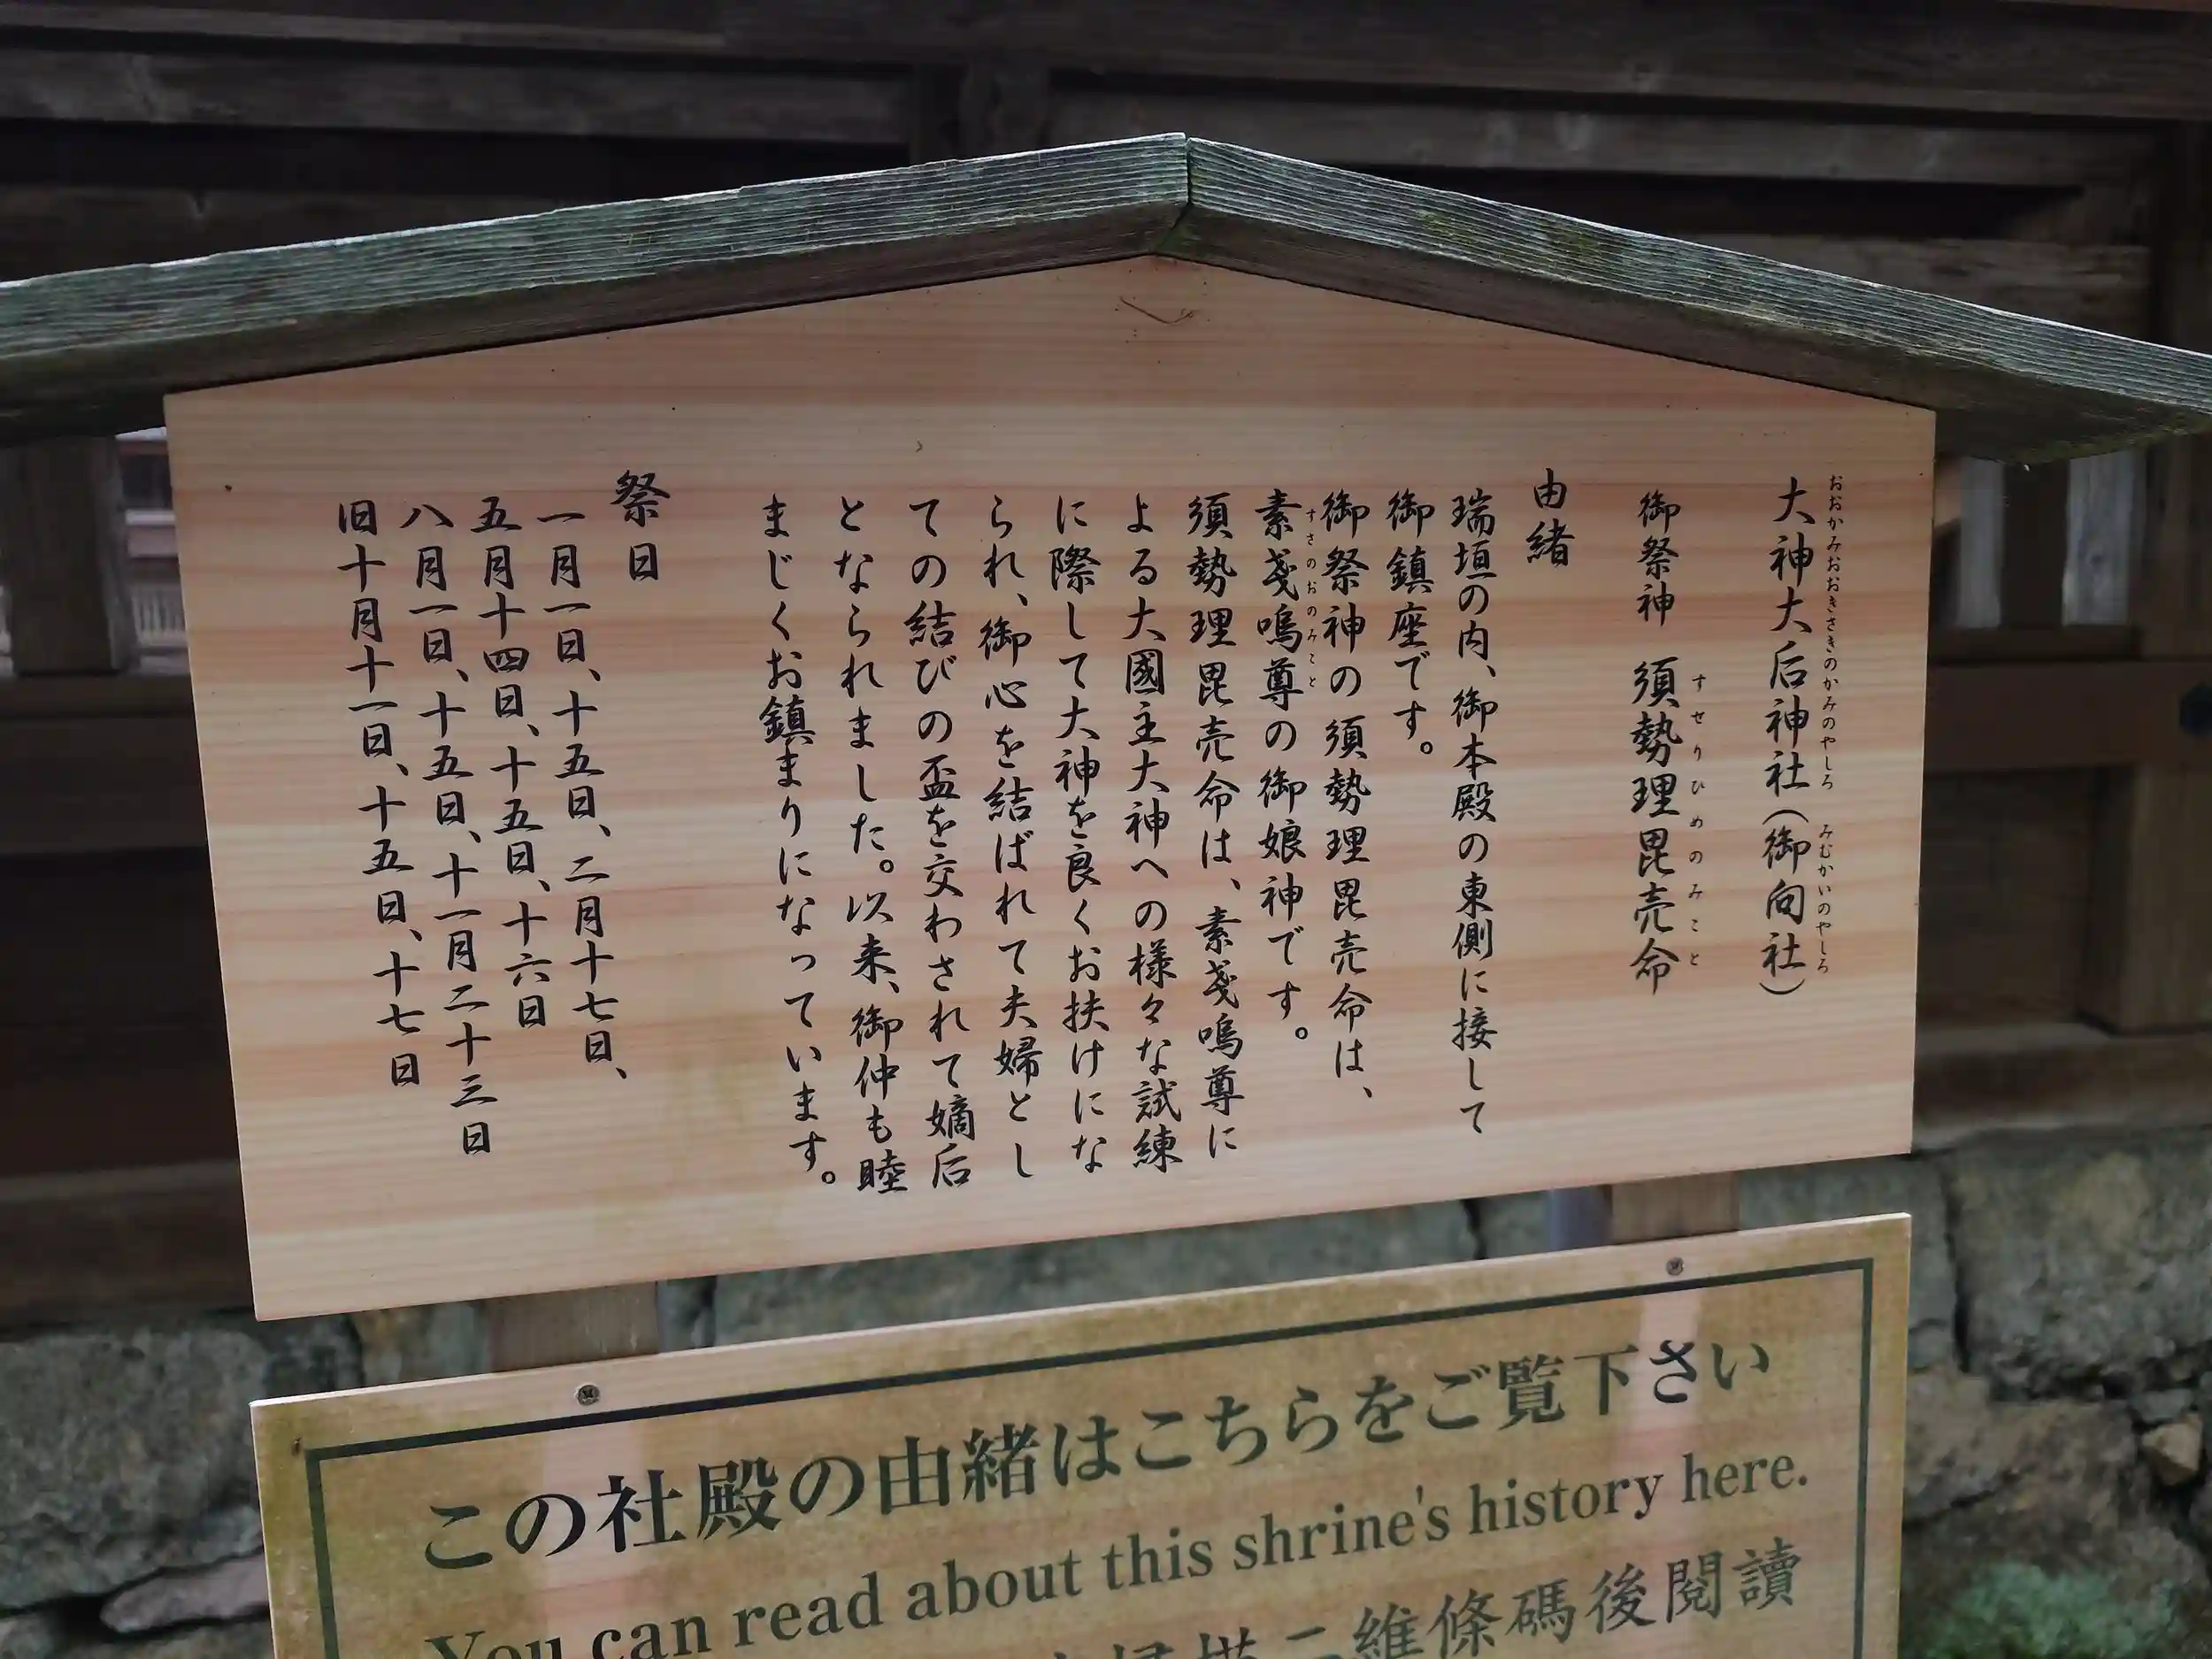 大神大后神社（御向社）
おおかみおおきさきのかみのやしろ
みむかいのやしろ
御祭神　須勢理毘売命
すせりひめのみこと
由緒
瑞垣の内、御本殿の東側に接して
御鎮座です。
御祭神の須勢理毘売命は、
素戔嗚尊の御娘神です。
すさのおのみこと
須勢理毘売命は、素戔嗚尊に
よる大國主大神への様々な試練
に際して大神を良くお扶けにな
られ、御心を結ばれて夫婦とし
ての結びの盃を交わされて嫡后
となられました。以来、御仲も睦
まじくお鎮まりになっています。
祭日
一月一日、十五日、二月十七日、
五月十四日、十五日、十六日
八月一日、十五日、十一月二十三日
旧十月十一日、十五日、十七日
この社殿の由緒はこちらをご覧下さい
You can read about this shrine's history here.
掃描二維條碼後閱讀